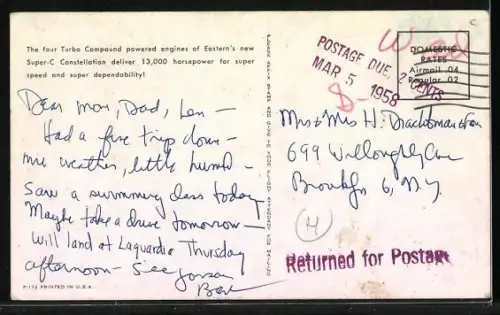 The four Turbo Compound powered engines of Eastern's new
Super-C Constellation deliver 13,000 horsepower for super
speed and super dependability!
Dear Mom, Dad, Len —
Had a fine trip down —
nice weather, little humid —
Saw a swimming class today
Maybe take a drive tomorrow —
Will land at Laguardia Thursday
afternoon — See you soon
P-172 PRINTED IN U.S.A.
POSTAGE DUE, 2 CENTS
MAR 5 1958
DOMESTIC
RATES
Airmail 04
Regular 02
Mr & Mrs H.
699 Willoughby Ave
Brooklyn 6, N.Y.
(4)
Returned for Postage